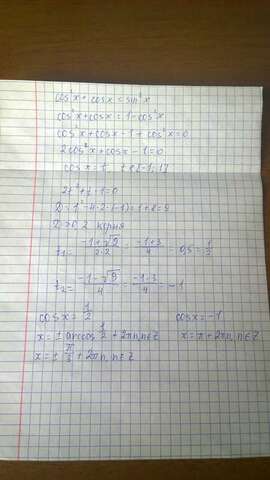 cos²x + cosx = sin²x
cos²x + cosx = 1 - cos²x
cos²x + cosx - 1 + cos²x = 0
2cos²x + cosx - 1 = 0
cosx = t t∈[-1; 1]
2t² + t - 1 = 0
D = 1² - 4·2·(-1) = 1 + 8 = 9
D > 0, 2 корня
t₁ = (-1+√9)/(2·2) = (-1+3)/4 = 0,5 = 1/2
t₂ = (-1-√9)/4 = (-1-3)/4 = -1
cosx = 1/2 cosx = -1
x = ± arccos 1/2 + 2πn, n∈Z x = π + 2πn, n∈Z
x = ± π/3 + 2πn, n∈Z